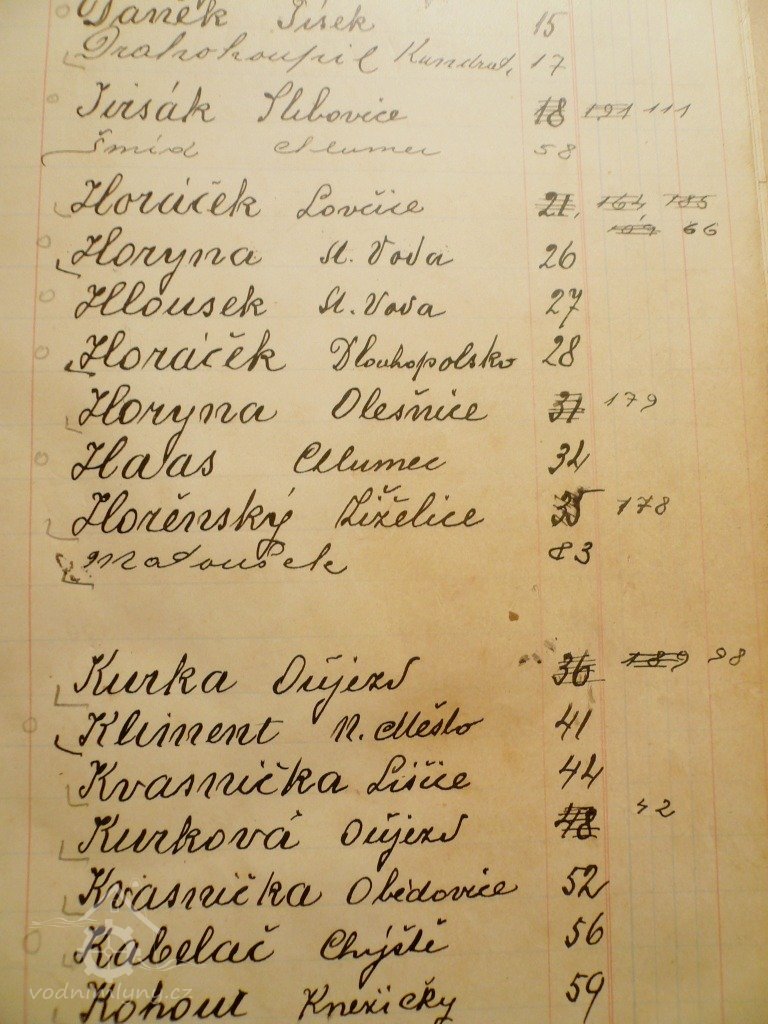 Daněk Písek 15
Drahokoupil Kundrat. 17
Jirsák Slibovice 18 191 111
Šmíd Chlumec 58
Horáček Lovčice 21. 164 185
109 66
Horyna St. Voda 26
Hlousek St. Voda 27
Horáček Dlouhopolsko 28
Horyna Olešnice 31 179
Haas Chlumec 34
Hořěnský Žiželice 35 178
Matoušek 83
Kurka Oújezd 36 189 98
Kliment N. Město 41
Kvasnička Lišice 44
Kurková Oújezd 48 42
Kvasnička Obědovice 52
Kabelač Chýště 56
Kohout Knežičky 59
vodnimlyny.cz